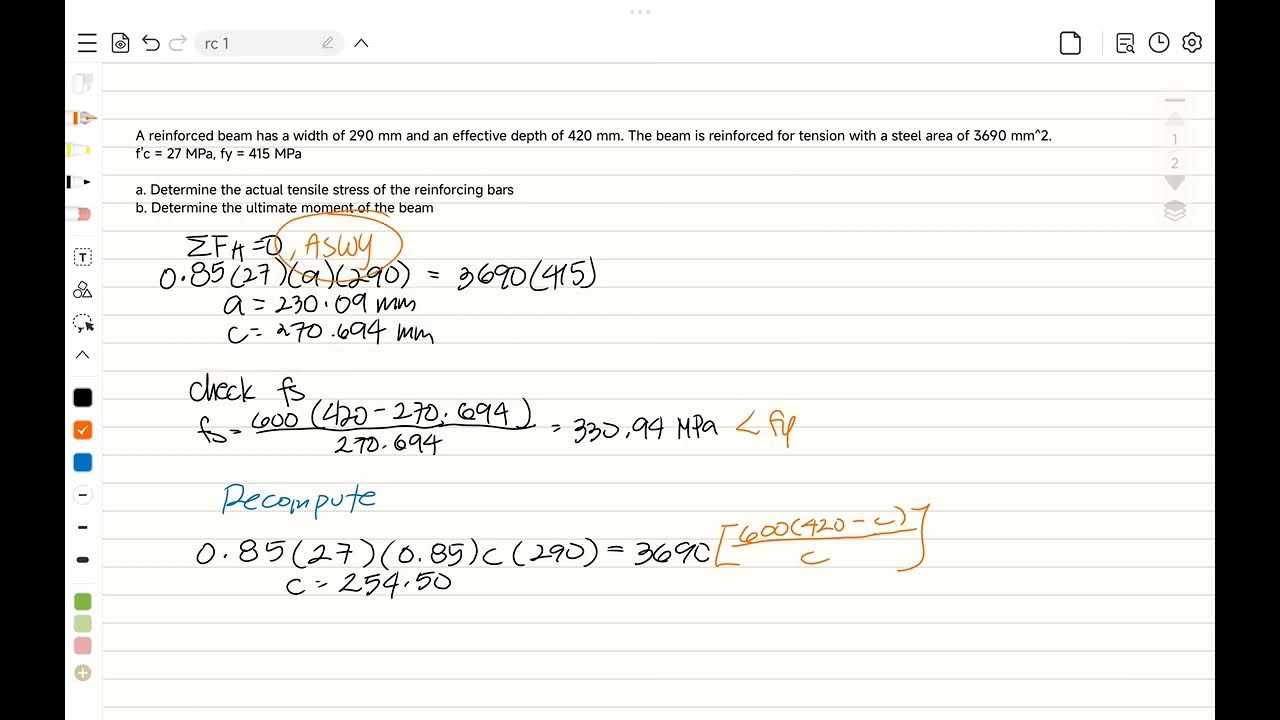 rc 1
A reinforced beam has a width of 290 mm and an effective depth of 420 mm. The beam is reinforced for tension with a steel area of 3690 mm^2.
f'c = 27 MPa, fy = 415 MPa
a. Determine the actual tensile stress of the reinforcing bars
b. Determine the ultimate moment of the beam
ΣFH=0, ASWY
0.85(27)(a)(290) = 3690(415)
a = 230.09 mm
c = 270.694 mm
check fs
fs = 600 (420 - 270.694) / 270.694 = 330.94 MPa < fy
Recompute
0.85(27)(0.85)c(290) = 3690 [600(420-c) / c]
c = 254.50
1
2
T